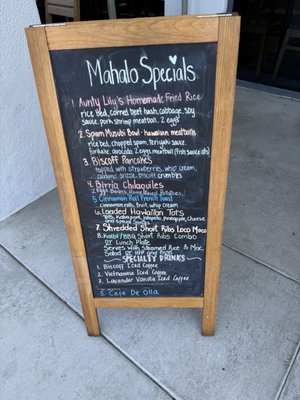 Mahalo Specials
1. Aunty Lily's Homemade Fried Rice
rice bed, corned beef hash, cabbage, soy
sauce, pork shrimp meatball, 2 eggs
2. Spam Musubi Bowl - hawaiian meatballs
rice bed, chopped spam, teriyaki sauce,
furikake, avocado, 2 eggs, meatball
3. Biscoff Pancakes
topped with strawberries, whip cream,
caramel drizzle, biscoff crumbles
4. Birria Chilaquiles
2 eggs, beans, homemade potatoes
5. Cinnamon Roll French Toast
cinnamon rolls, fruit, whip cream
6. Loaded Hawaiian Tots
tots, kalua pork, jalapeño, pineapple, cheese
and special sauce
7. Shredded Short Ribs Loco Moco
8. Kalbi/BBQ Short Ribs Combo
or Lunch Plate
Serves with Steamed Rice & Mac
Salad
SPECIALTY DRINKS
1. Biscoff Iced Coffee
2. Vietnamese Iced Coffee
3. Lavender Vanilla Iced Coffee
5. Cafe De Olla